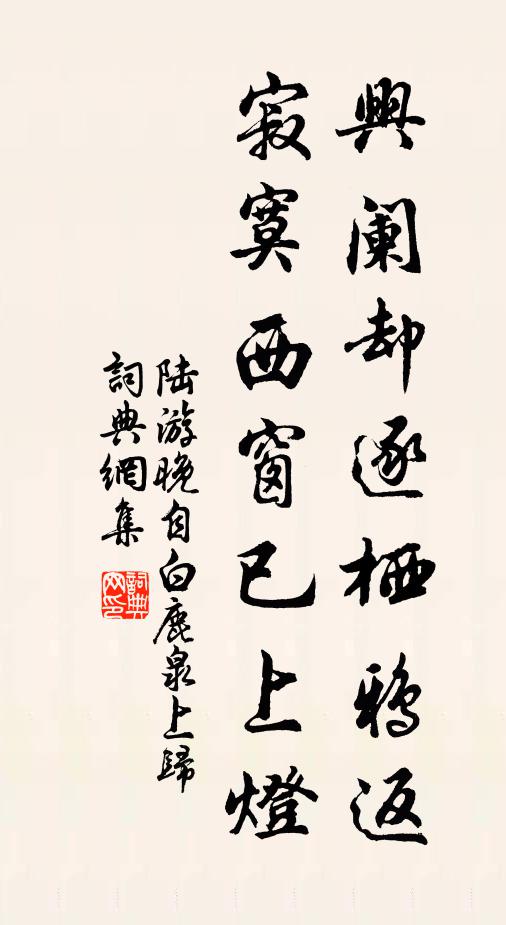 興阑却逐栖鴉返
寂寞西窗已上燈
陆游晚自白鹿泉上歸
詞典網集
詞典網印